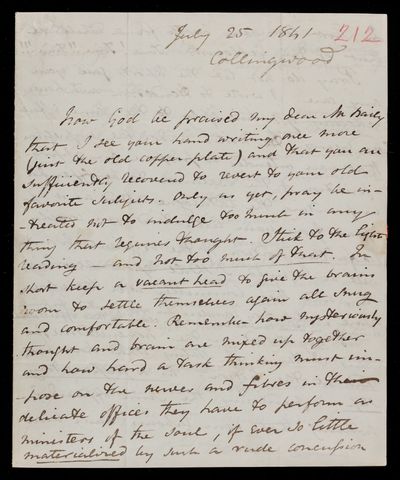 July 25 1841 212
Collingwood
Now God be praised my dear Mr Baily
that I see your hand writing once more
(just the old copper plate) and that you are
sufficiently recovered to revert to your old
favorite subjects. Only as yet, pray be in-
-treated not to indulge too much in any
thing that requires thought. Stick to the lightest
reading – and not too much of that. In
short keep a vacant head to give the brains
room to settle themselves again all snug
and comfortable. Remember how mysteriously
thought and brain are mixed up together
and how hard a task thinking must im-
-pose on the nerves and fibres in their
delicate offices they have to perform as
ministers of the soul, if ever so little
materialized by such a rude concussion